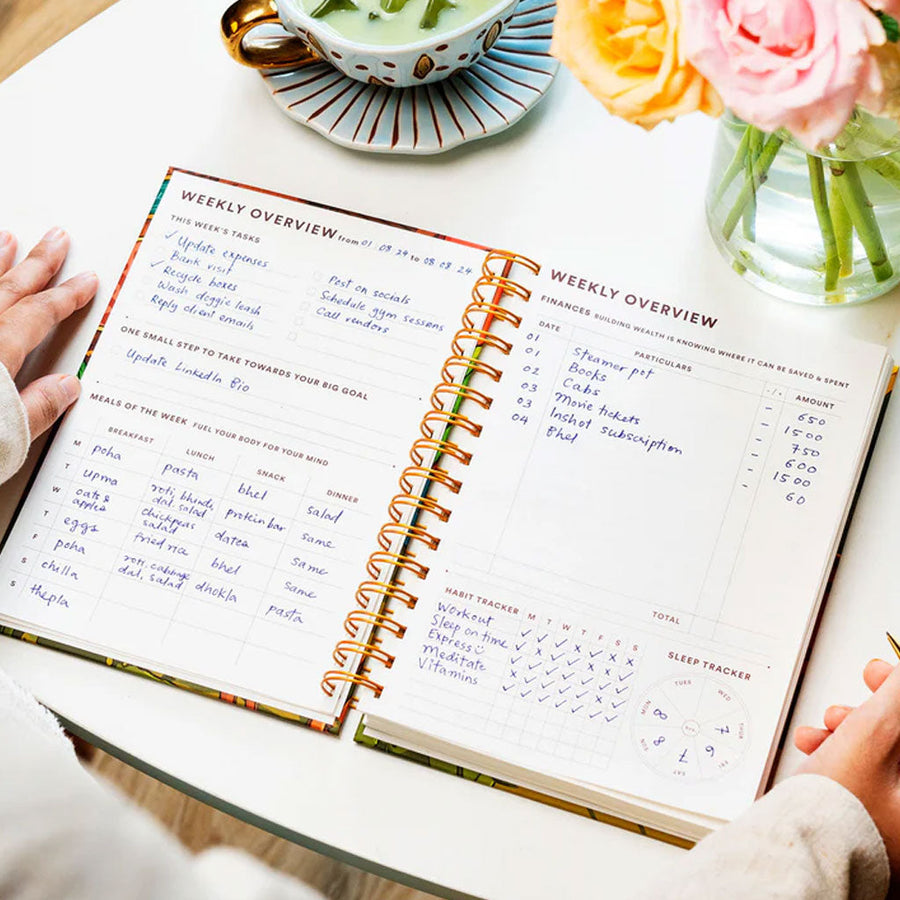 WEEKLY OVERVIEW from 01 08 24 to 08 08 24
THIS WEEK'S TASKS
✓ Update expenses
Bank visit
✓ Recycle boxes
Wash doggie leash
Reply client emails
Post on socials
Schedule gym sessions
Call vendors
ONE SMALL STEP TO TAKE TOWARDS YOUR BIG GOAL
Update LinkedIn Bio
MEALS OF THE WEEK FUEL YOUR BODY FOR YOUR MIND
BREAKFAST LUNCH SNACK DINNER
M poha pasta bhel salad
T upma roti, bhindi, dal, salad protein bar same
W oats & apples chickpeas salad dates same
T eggs fried rice bhel same
F poha roti, cabbage dal, salad dhokla pasta
S chilla
S thepla
WEEKLY OVERVIEW
FINANCES BUILDING WEALTH IS KNOWING WHERE IT CAN BE SAVED & SPENT
DATE PARTICULARS -/+ AMOUNT
01 Steamer pot - 650
01 Books - 1500
02 Cabs - 750
03 Movie tickets - 600
03 Inshot subscription - 1500
04 Bhel - 60
TOTAL
HABIT TRACKER M T W T F S S
Workout
Sleep on time
Express
Meditate
Vitamins
SLEEP TRACKER
MON TUES WED THUR FRI SAT SUN
8 7 6 7 8